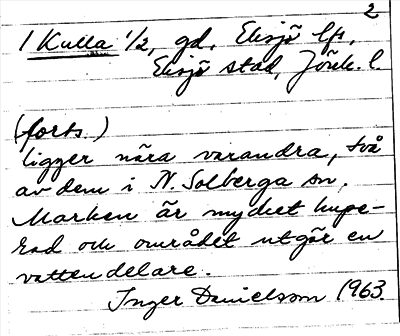 2
1 Kulla 1/2, gd, Eksjö lfs,
Eksjö stad, Jönk. l.
(forts.)
ligger nära varandra, två
av dem i N. Solberga sn,
Marken är mycket kupe-
rad och området utgör en
vattendelare.
Inger Danielsson 1963.